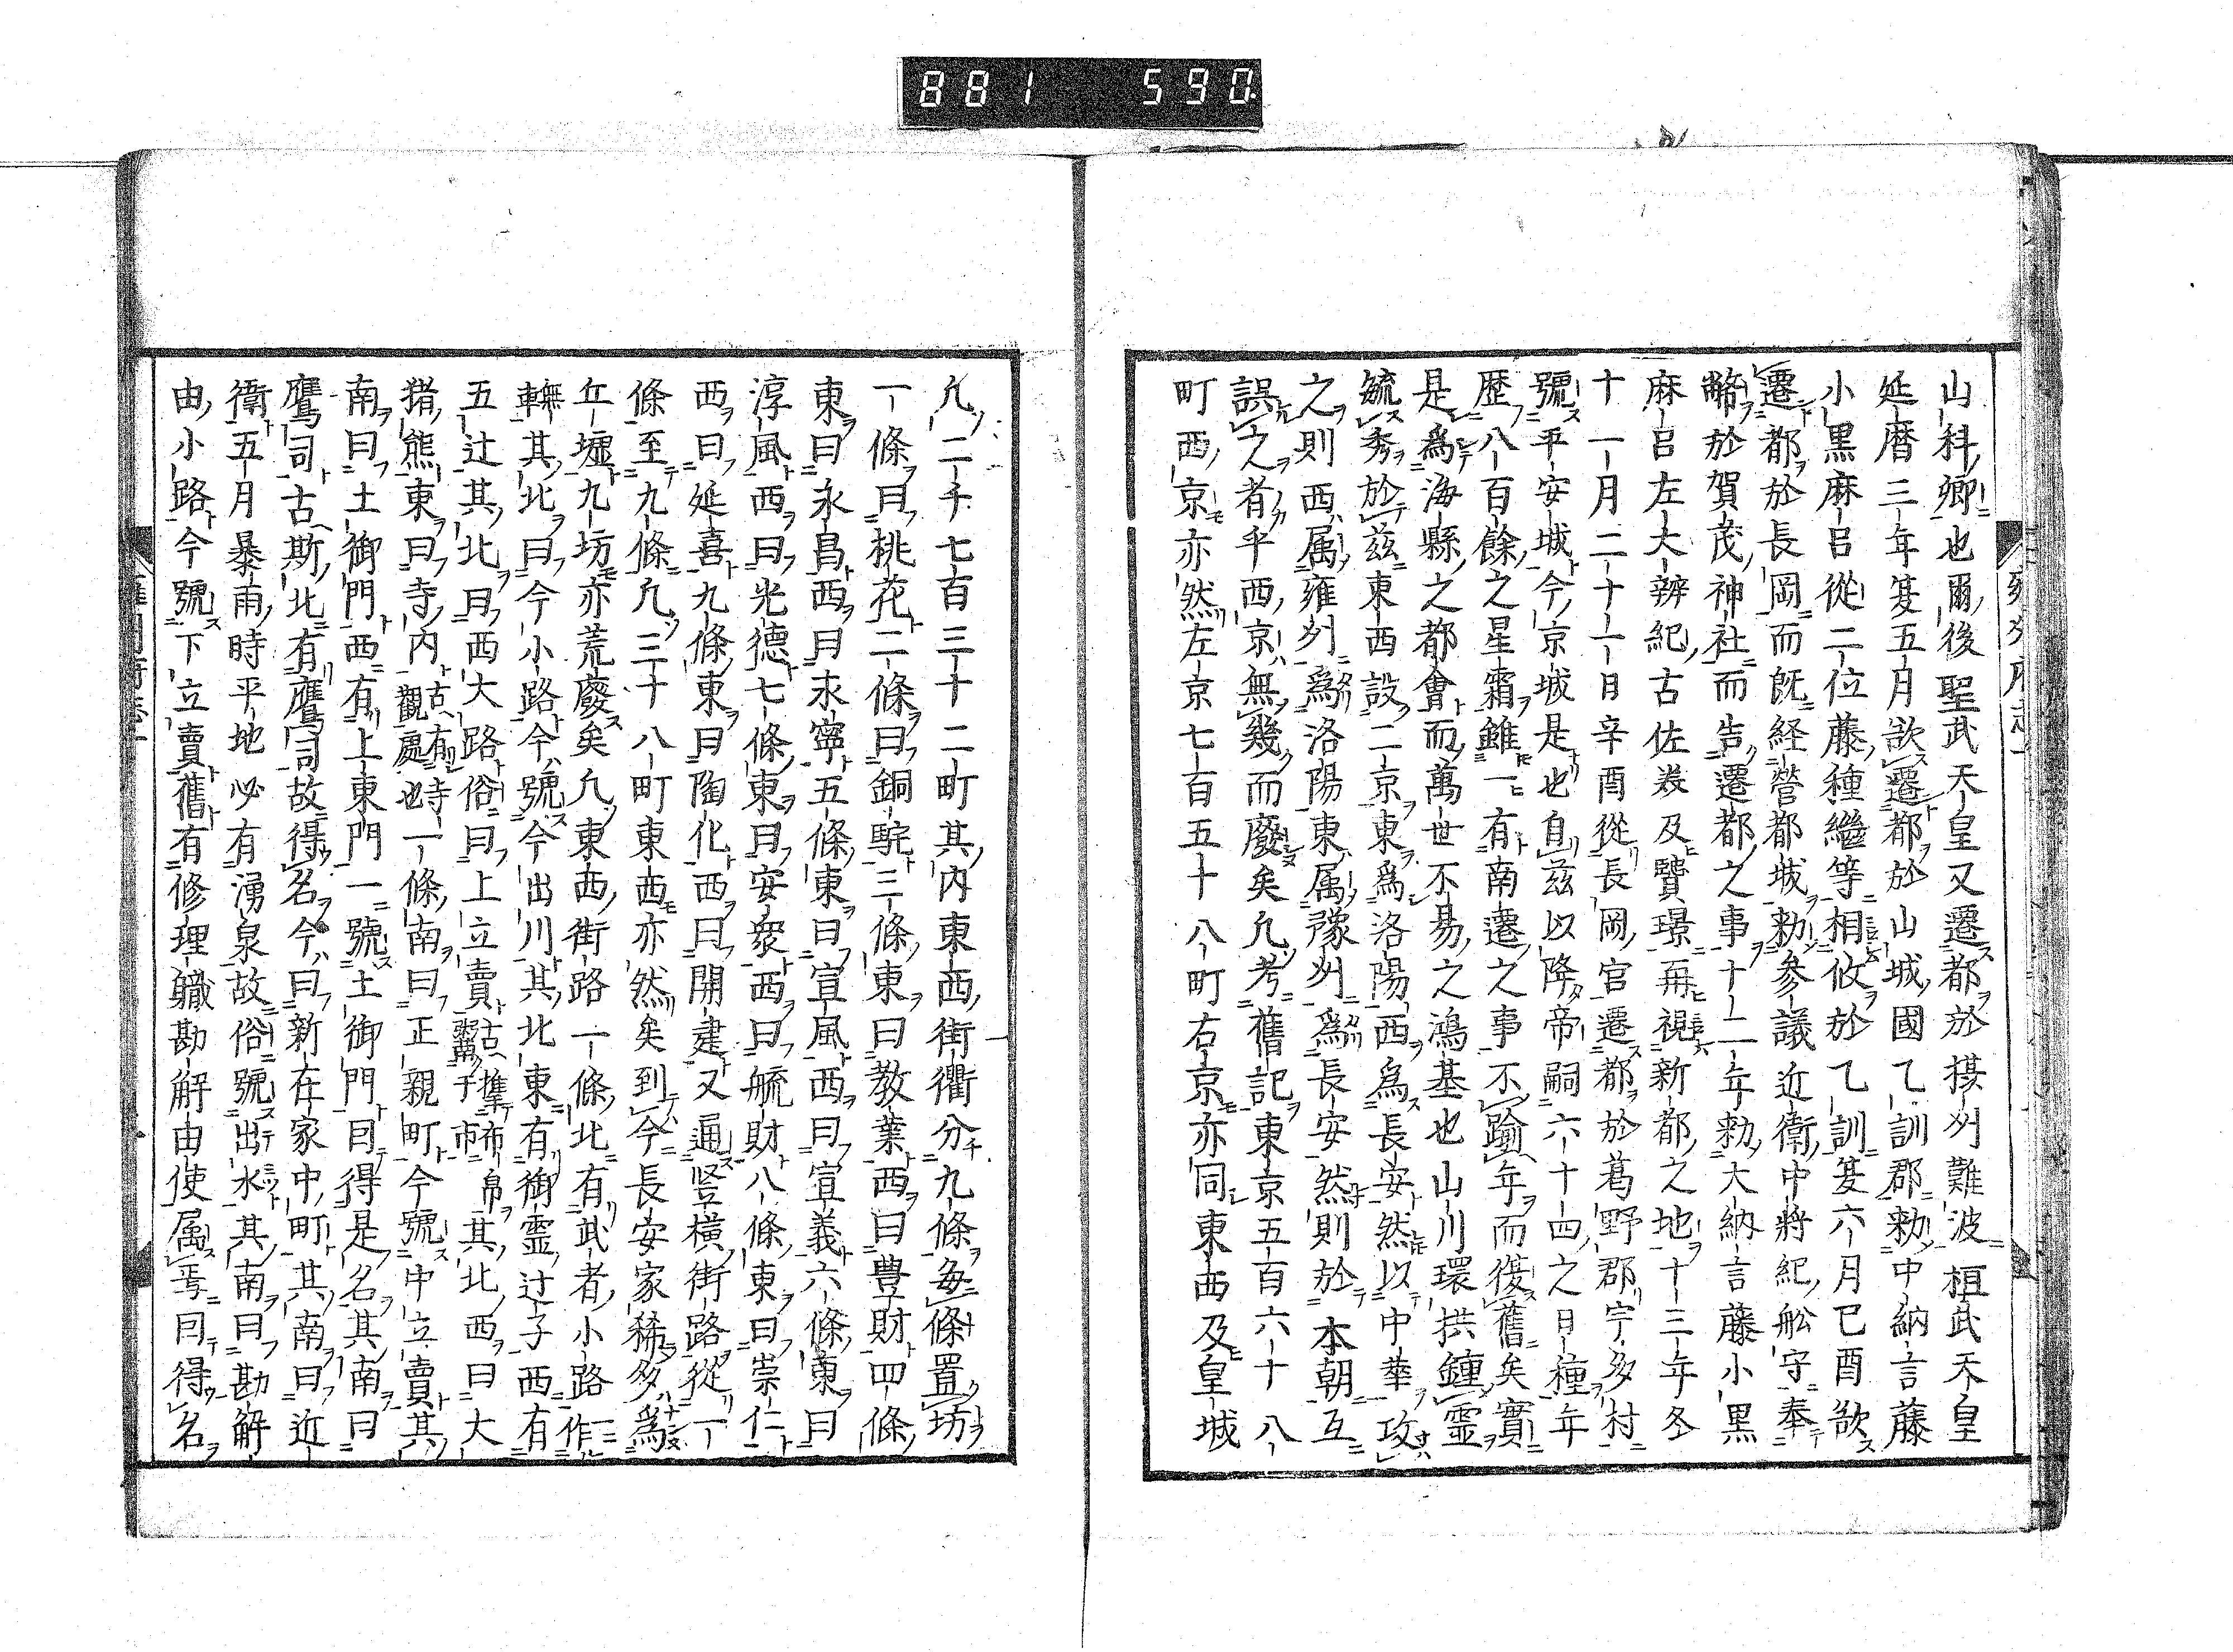 881 590
山科郷也爾後聖武天皇又遷都於摂州難波桓武天皇
延暦三年夏五月欲遷都於山城國乙訓郡勅中納言藤
小黒麻呂從二位藤種繼等相攸於乙訓夏六月己酉欲
遷都於長岡而既経營都城勅参議近衛中將紀舩守奉
幣於賀茂神社而告遷都之事十二年勅大納言藤小黒
麻呂左大辨紀古佐美及賢璟再視新都之地十三年冬
十一月二十一日辛酉從長岡宮遷都於葛野郡宇多村
號平安城今京城是也自茲以降帝嗣六十四之日種年
歴八百餘之星霜雖一有南遷之事不踰年而復舊矣實
是爲海縣之都會而萬世不易之鴻基也山川環拱鍾靈
毓秀於茲東西設二京東爲洛陽西爲長安然以中華攻
之則西属雍州爲洛陽東属豫州爲長安然則於本朝互
誤之者乎西京無幾而廢矣凡考舊記東京五百六十八
町西京亦然左京七百五十八町右京亦同東西及皇城
凡二千七百三十二町其内東西街衢分九條毎條置坊
一條曰桃花二條曰銅駝三條東曰教葉西曰豊財四條
東曰永昌西曰永寧五條東曰宣風西曰宣義六條東曰
淳風西曰光徳七條東曰安衆西曰毓財八條東曰崇仁
西曰延喜九條東曰陶化西曰開建又通竪横街路從一
條至九條凡三十八町東西亦然矣到今長安家稀多爲
丘墟九坊亦荒廢矣凡東西街路一條北有武者小路作
無車其北曰今小路今號今出川其北東有御霊辻子西有
五辻其北曰西大路俗曰上立賣古携布帛粥于市其北西曰大
猪熊東曰寺内古有寺觀處也一條南曰正親町今號中立賣其
南曰土御門西有上東門一號土御門因得是名其南曰
鷹司古斯北有鷹司故得名今曰新在家中町其南曰近
衛五月暴雨時平地必有湧泉故俗號出水其南曰勘解
由小路今號下立賣舊有修理職勘解由使属焉因得名